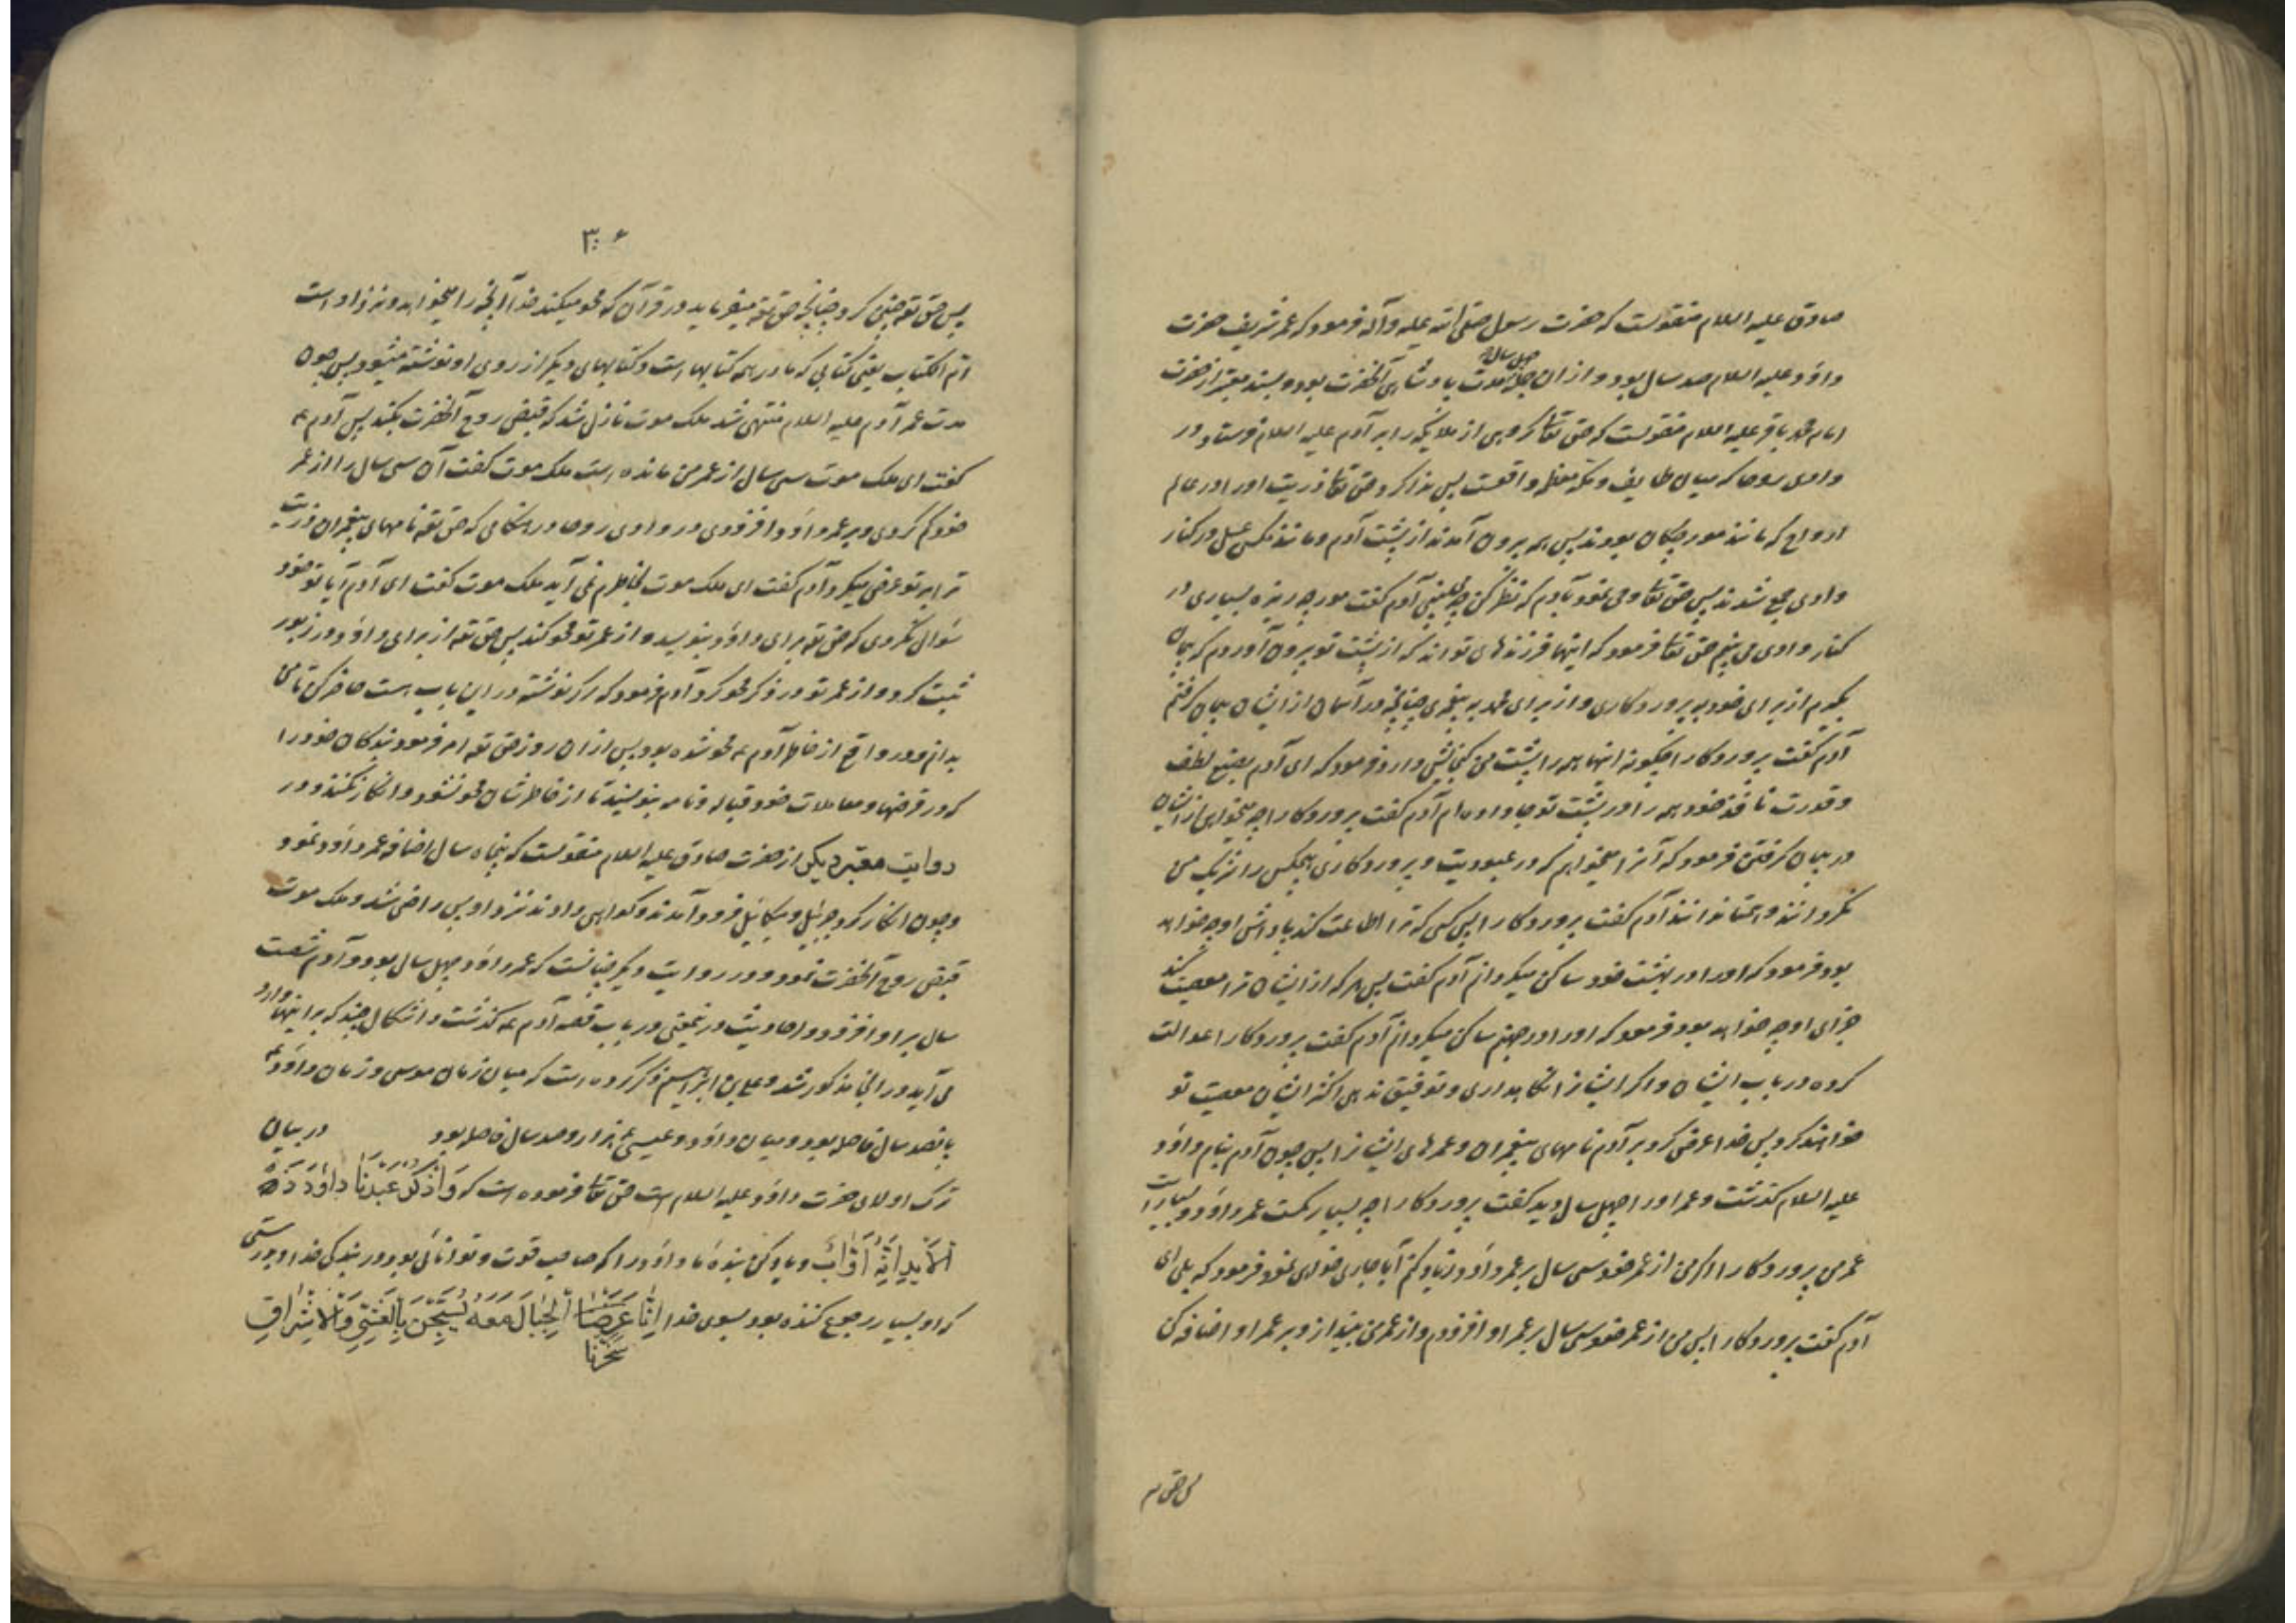 صادق علیه السلام منقولست که حضرت رسول صلی الله علیه وآله فرمود که عمر شریف حضرت
چهل سال
داود علیه السلام صد سال بود و از ان مدت پادشاهی آنحضرت بود و بسند معتبر از حضرت
امام محمد باقر علیه السلام منقولست که حق تعا گروهی از ملائکه را بر آدم علیه السلام فرستاد در
وادی روحا که میان طایف و مکه معظمه واقعست پس ندا کرد حق تعا ذریت او را در عالم
ارواح که مانند مورچکان بودند پس همه بیرون آمدند از پشت آدم و مانند مکس عسل در کنار
وادی جمع شدند پس حق تعا وحی نمود بآدم که نظر کن چه می بینی آدم گفت مورچه ریزه بسیاری در
کنار وادی می بینم حق تعا فرمود که اینها فرزندهای تواند که از پشت تو بیرون آوردم که پیمان
بگیرم از برای خود به پروردکاری و از برای محمد به پیغمبری چنانچه در آسمان از ایشان پیمان گرفتم
آدم گفت پروردکارا چگونه اینها همه را پشت من گنجایش دارد فرمود که ای آدم بصنع لطف
و قدرت نافذ خود همه را در پشت تو جا داده ام آدم گفت پروردکارا چه میخواهی از ایشان
در پیمان گرفتن فرمود که آنرا میخواهم که در عبودیت و پروردکاری هیچکس را شریک من
نگردانند آدم گفت پروردکارا پس کسی که ترا اطاعت کند پاداش او چه خواهد
بود فرمود که او را در بهشت خود ساکن میگردانم آدم گفت پس هر که از ایشان ترا معصیت کند
جزای او چه خواهد بود فرمود که او را در جهنم ساکن میگردانم آدم گفت پروردکارا عدالت
کرده در باب ایشان و اگر ایشانرا نگاه نداری و توفیق ندهی اکثر ایشان معصیت تو
خواهند کرد پس خدا عرض کرد بر آدم نامهای پیغمبران و عمرهای ایشانرا پس چون آدم بنام داود
علیه السلام گذشت و عمر او را چهل سال دید گفت پروردکارا چه بسیار کمست عمر داود و بسیار است
عمر من پروردکارا اگر من از عمر خود سی سال بر عمر داود زیاد کنم آیا جاری خواهی نمود فرمود که بلی ای
آدم گفت پروردکارا پس من از عمر خود سی سال بر عمر او افزودم و از عمر من بینداز و بر عمر او اضافه کن
پس حق تعه
۳۰۶
پس حق تعه چنین کرد چنانچه حق تعه میفرماید در قرآن که محو میکند خدا آنچه را میخواهد و نزد او است
ام الکتاب یعنی کتابی که مادر همه کتابها است و کتابهای دیگر از روی او نوشته میشود پس چون
مدت عمر آدم علیه السلام منتهی شد ملک موت نازل شد که قبض روح آنحضرت بکند پس آدم ع
گفت ای ملک موت سی سال از عمر من مانده است ملک موت گفت آن سی سال را از عمر
خود کم کردی و بر عمر داود افزودی در وادی روحا در هنگامی که حق تعه نامهای پیغمبران ذریت
ترا بر تو عرض میکرد آدم گفت ای ملک موت بخاطرم نمی آید ملک موت گفت ای آدم آیا تو خود
سوال نکردی که حق تعه برای داود بنویسد و از عمر تو محو کند پس حق تعه از برای داود در زبور
ثبت کرد و از عمر تو در ذکر محو کرد آدم فرمود که اگر نوشته در این باب هست حاضر کن تا من
بدانم و در واقع از خاطر آدم ع محو شده بود پس از ان روز حق تعه امر فرمود بندکان خود را
که در قرضها و معاملات خود قباله و نامه بنویسند تا از خاطر شان محو نشود و انکار نکنند و در
روایت معتبر دیگر از حضرت صادق علیه السلام منقولست که پنجاه سال اضافه عمر داود نمود
و چون انکار کرد جبرئیل و میکائیل فرود آمدند و گواهی دادند نزد او پس راضی شد و ملک موت
قبض روح آنحضرت نمود و در روایت دیگر چنانست که عمر داود چهل سال بود و آدم شصت
سال بر او افزود و احادیث در نمعنی در باب قصه آدم ع گذشت و اشکال چند که بر اینها وارد
می آید در انجا مذکور شد و علی بن ابراهیم ذکر کرده است که میان زمان موسی و زمان داود ع
پانصد سال فاصله بود و میان داود و عیسی ع هزار و صد سال فاصله بود در بیان
ترک اولای حضرت داود علیه السلام است حق تعا فرموده است که وَاذْکُرْ عَبْدَنَا دَاوُدَ ذَا
الْأَیْدِ اِنَّهُ اَوَّابٌ و یاد کن بنده ما داود را که صاحب قوت و توانائی بود در بندگی خدا و بدرستی
که او بسیار رجوع کننده بود بسوی خدا اِنَّا عَرَضْنَا الْجِبَالَ مَعَهُ یُسَبِّحْنَ بِالْعَشِیِّ وَالْاِشْرَاقِ
سَخَّرْنَا